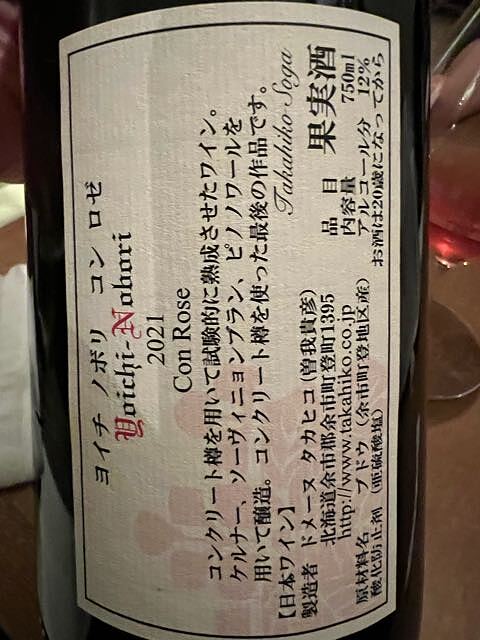 ヨイチ ノボリ コン ロゼ
Yoichi-Nobori
2021
Con Rose
コンクリート樽を用いて試験的に熟成させたワイン。
ケルナー、ソーヴィニョンブラン、ピノノワールを
用いて醸造。コンクリート樽を使った最後の作品です。
Takahiko Soga
【日本ワイン】
製造者 ドメーヌ タカヒコ(曽我貴彦)
北海道余市郡余市町登町1395
http://www.takahiko.co.jp
原材料名 ブドウ(余市町登地区産)
酸化防止剤(亜硫酸塩)
品目 果実酒
内容量 750ml
アルコール分 12%
お酒は20歳になってから